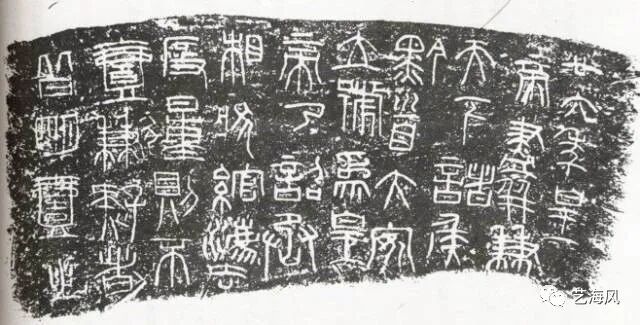 廿六年皇
帝盡并兼
天下諸侯
黔首大安
立號為皇
帝乃詔丞
相狀綰灋
度量則不
壹歉疑者
皆明壹之
艺海风